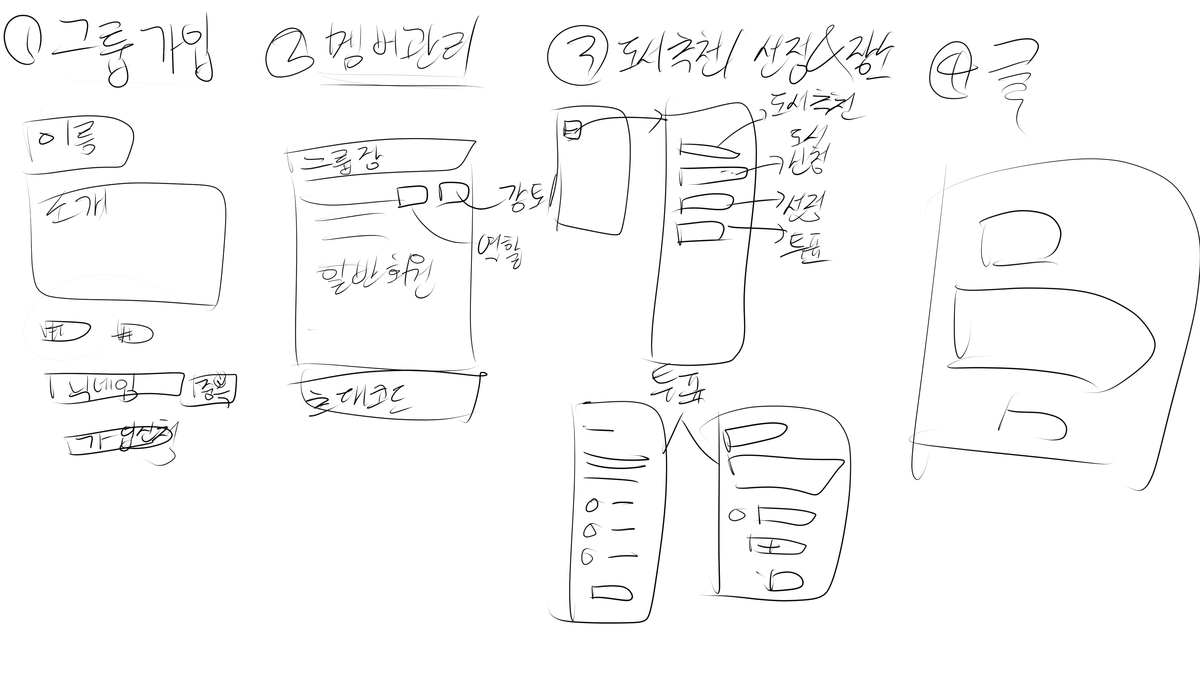 ① 그룹 가입
이름
소개
# #
닉네임 중복
가입신청
② 멤버관리
그룹장
강퇴
역할
일반회원
초대코드
③ 도서추천/선정&장소
도서추천
도서
신청
선정
투표
투표
④ 글